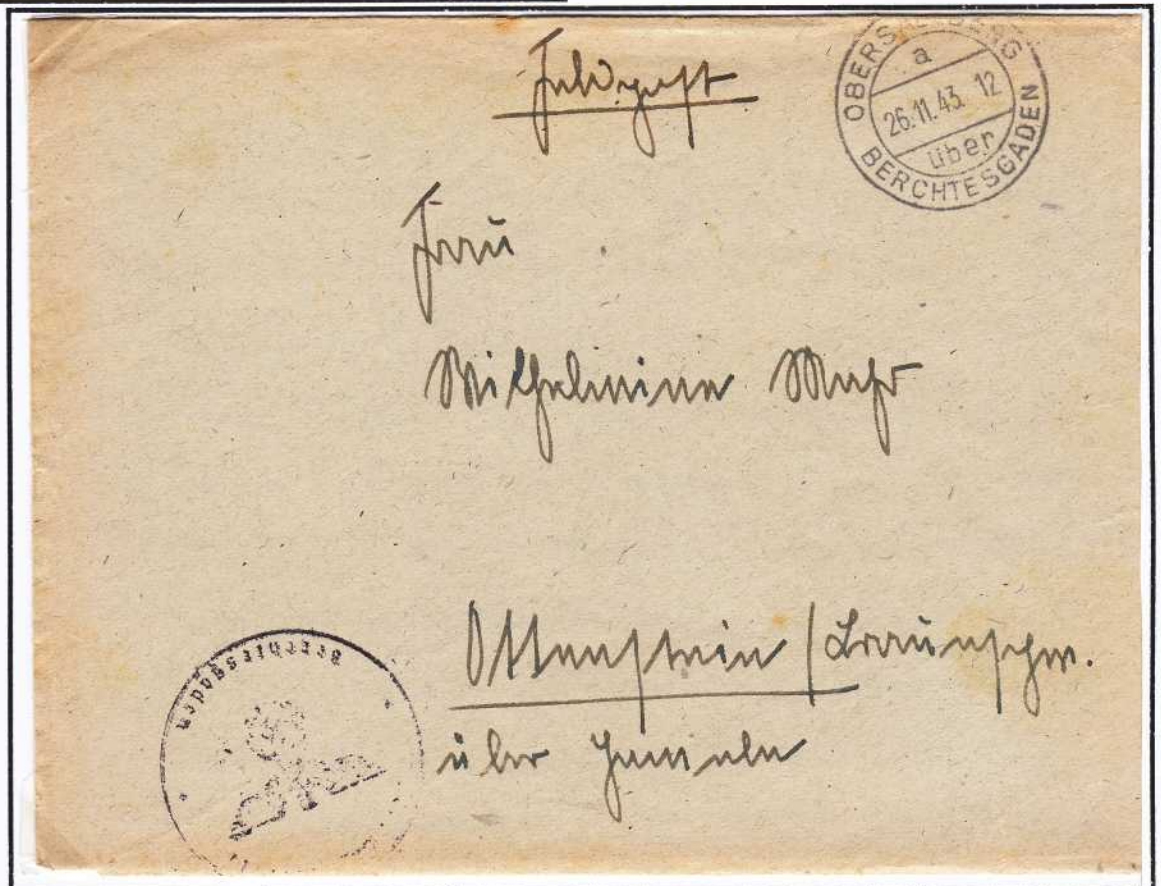 Feldpost
OBERSALZBERG
a
26.11.43. 12
über
BERCHTESGADEN
Frau
Wilhelmine Mahr
Ottenstein / Braunschw.
über Hameln
Berchtesgaden